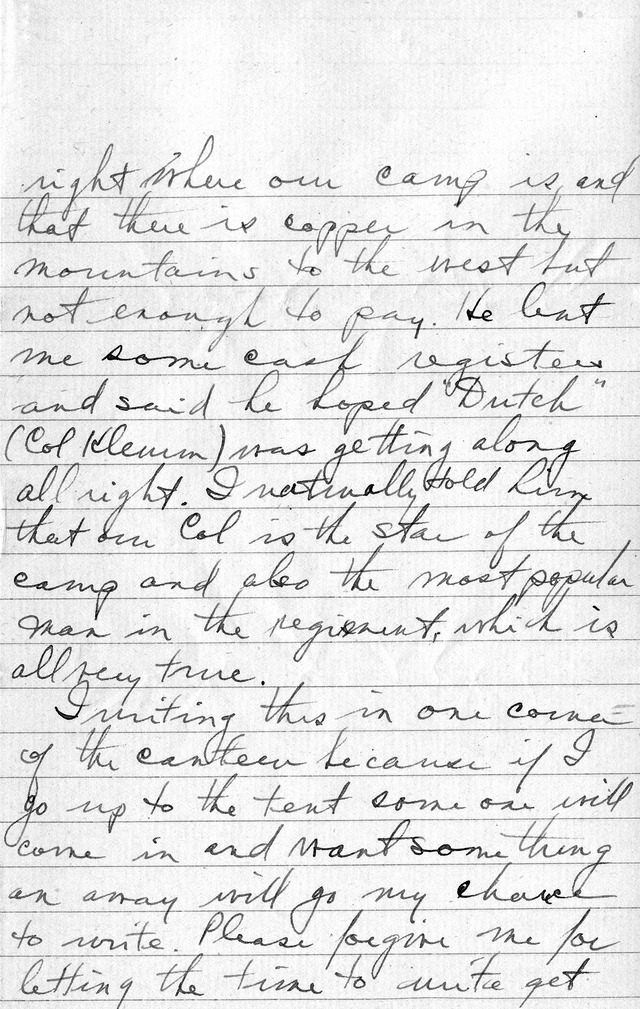 right where our camp is and
that there is copper in the
mountains to the west but
not enough to pay. He lent
me some cash registers
and said he hoped "Dutch"
(Col Klemm) was getting along
all right. I naturally told him
that our Col is the star of the
camp and also the most popular
man in the regiment, which is
all very true.
I writing this in one corner
of the canteen because if I
go up to the tent some one will
come in and want something
an away will go my chance
to write. Please forgive me for
letting the time to write get